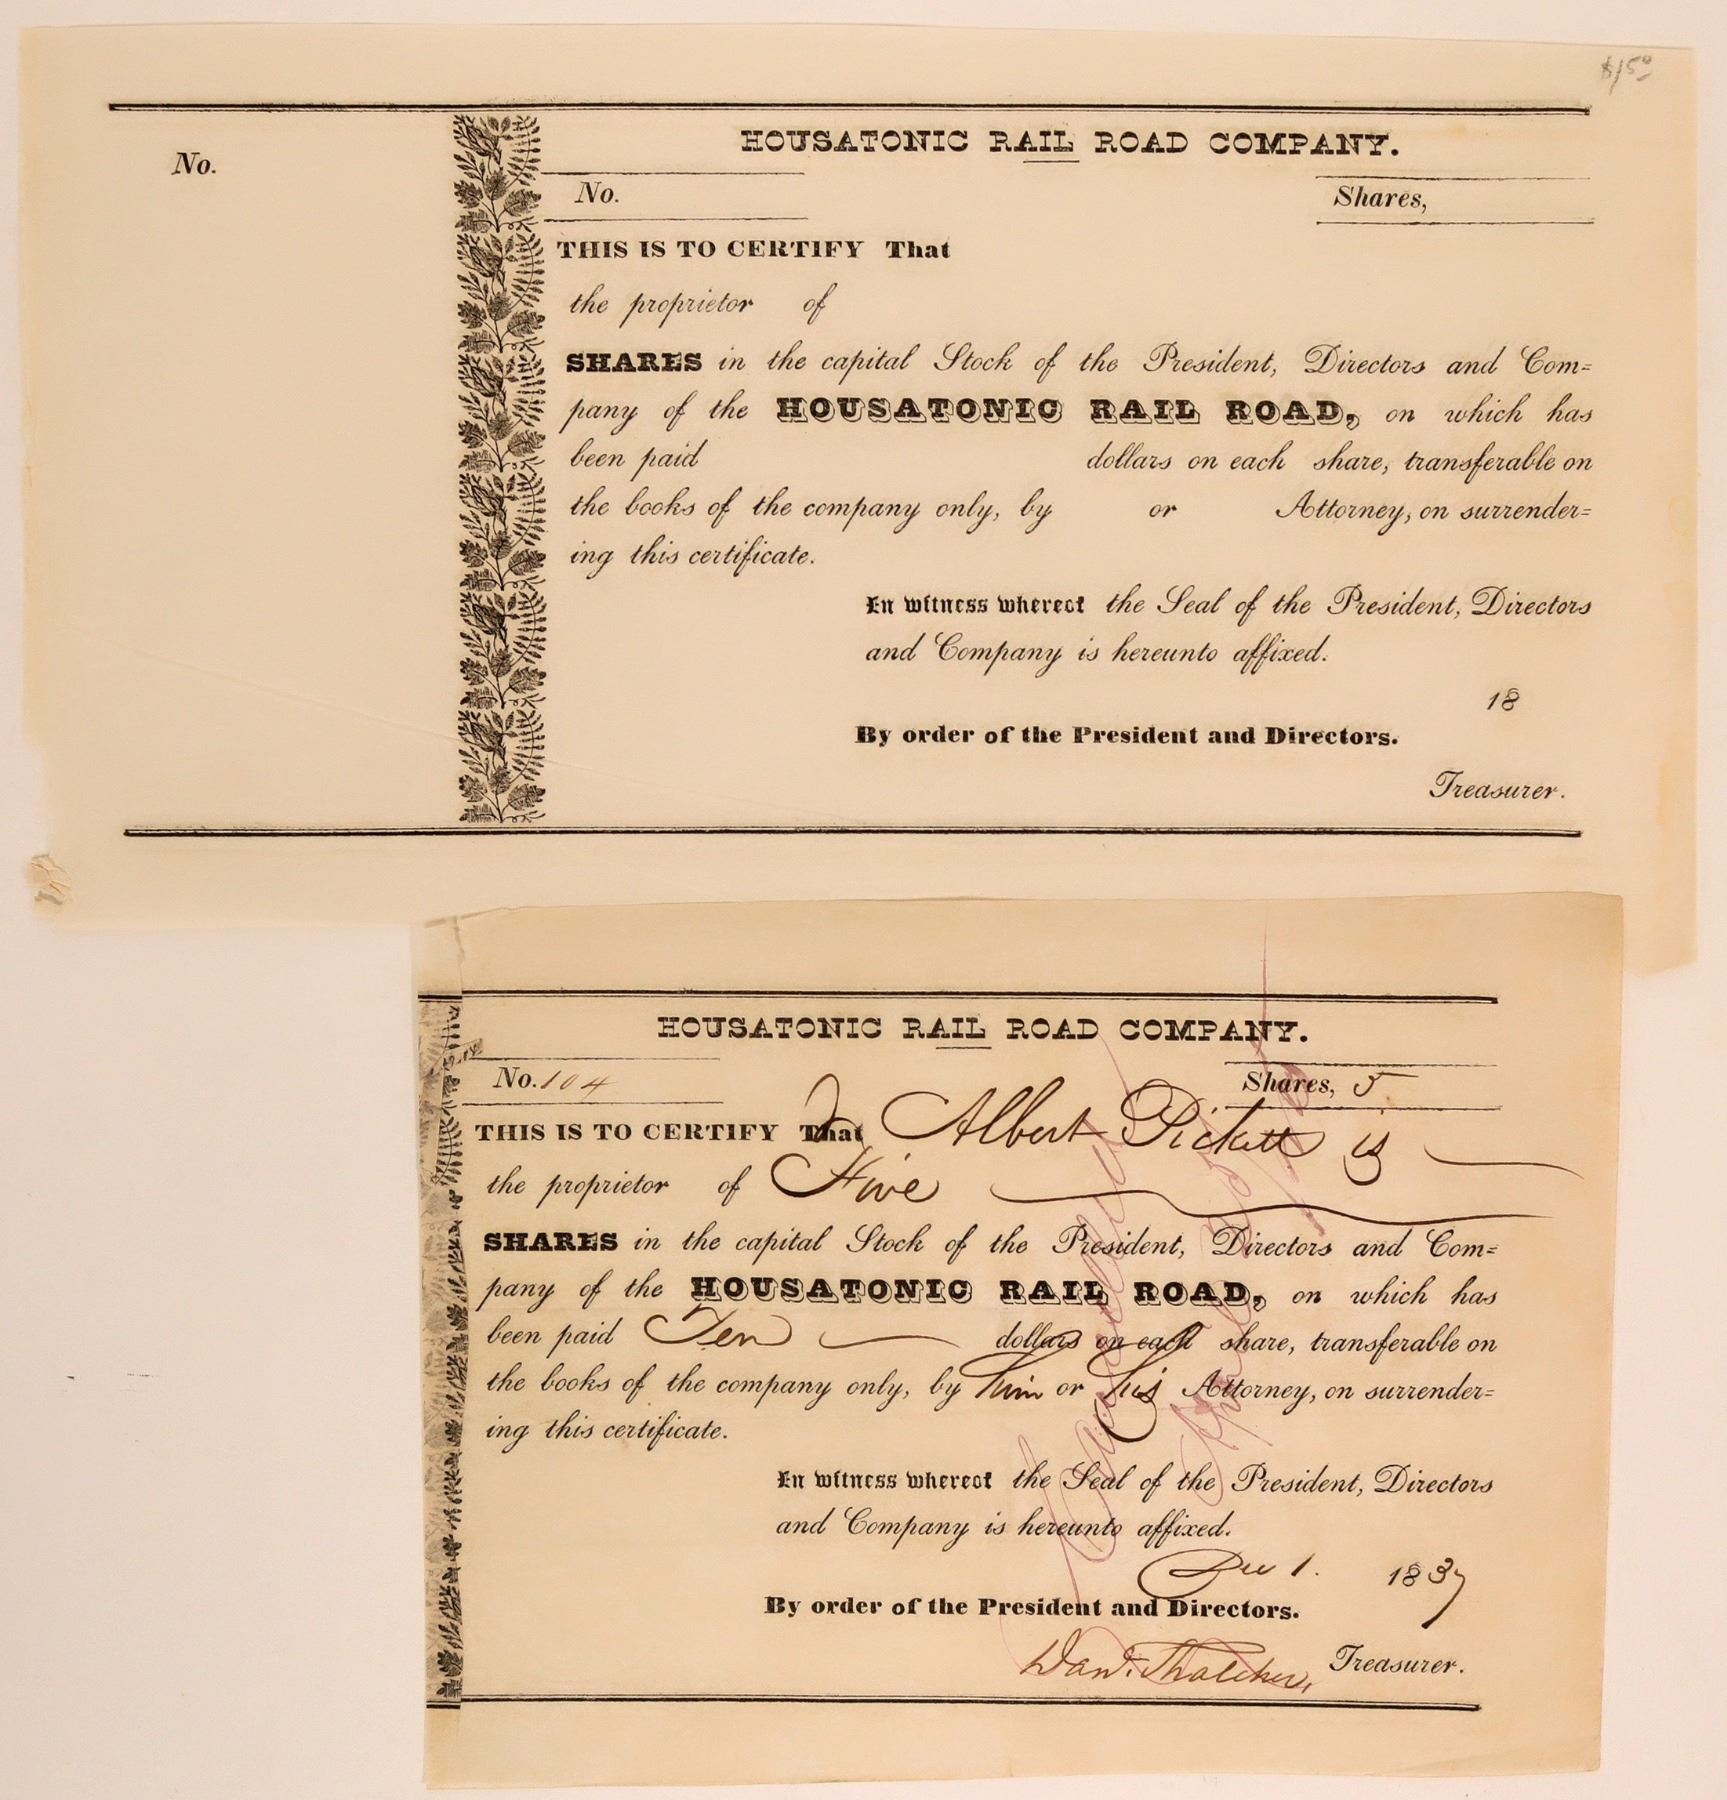 $15⁰
HOUSATONIC RAIL ROAD COMPANY.
No.
No. Shares,
THIS IS TO CERTIFY That
the proprietor of
SHARES in the capital Stock of the President, Directors and Com=
pany of the HOUSATONIC RAIL ROAD, on which has
been paid dollars on each share, transferable on
the books of the company only, by or Attorney, on surrender=
ing this certificate.
In witness whereof the Seal of the President, Directors
and Company is hereunto affixed.
18
By order of the President and Directors.
Treasurer.
HOUSATONIC RAIL ROAD COMPANY.
No. 104 Shares, 5
THIS IS TO CERTIFY That Albert Pickett is
the proprietor of Five
SHARES in the capital Stock of the President, Directors and Com=
pany of the HOUSATONIC RAIL ROAD, on which has
been paid Ten dollars on each share, transferable on
the books of the company only, by him or his Attorney, on surrender=
ing this certificate.
In witness whereof the Seal of the President, Directors
and Company is hereunto affixed.
Dec 1. 1837
By order of the President and Directors.
Danl. Thatcher, Treasurer.
Cancelled